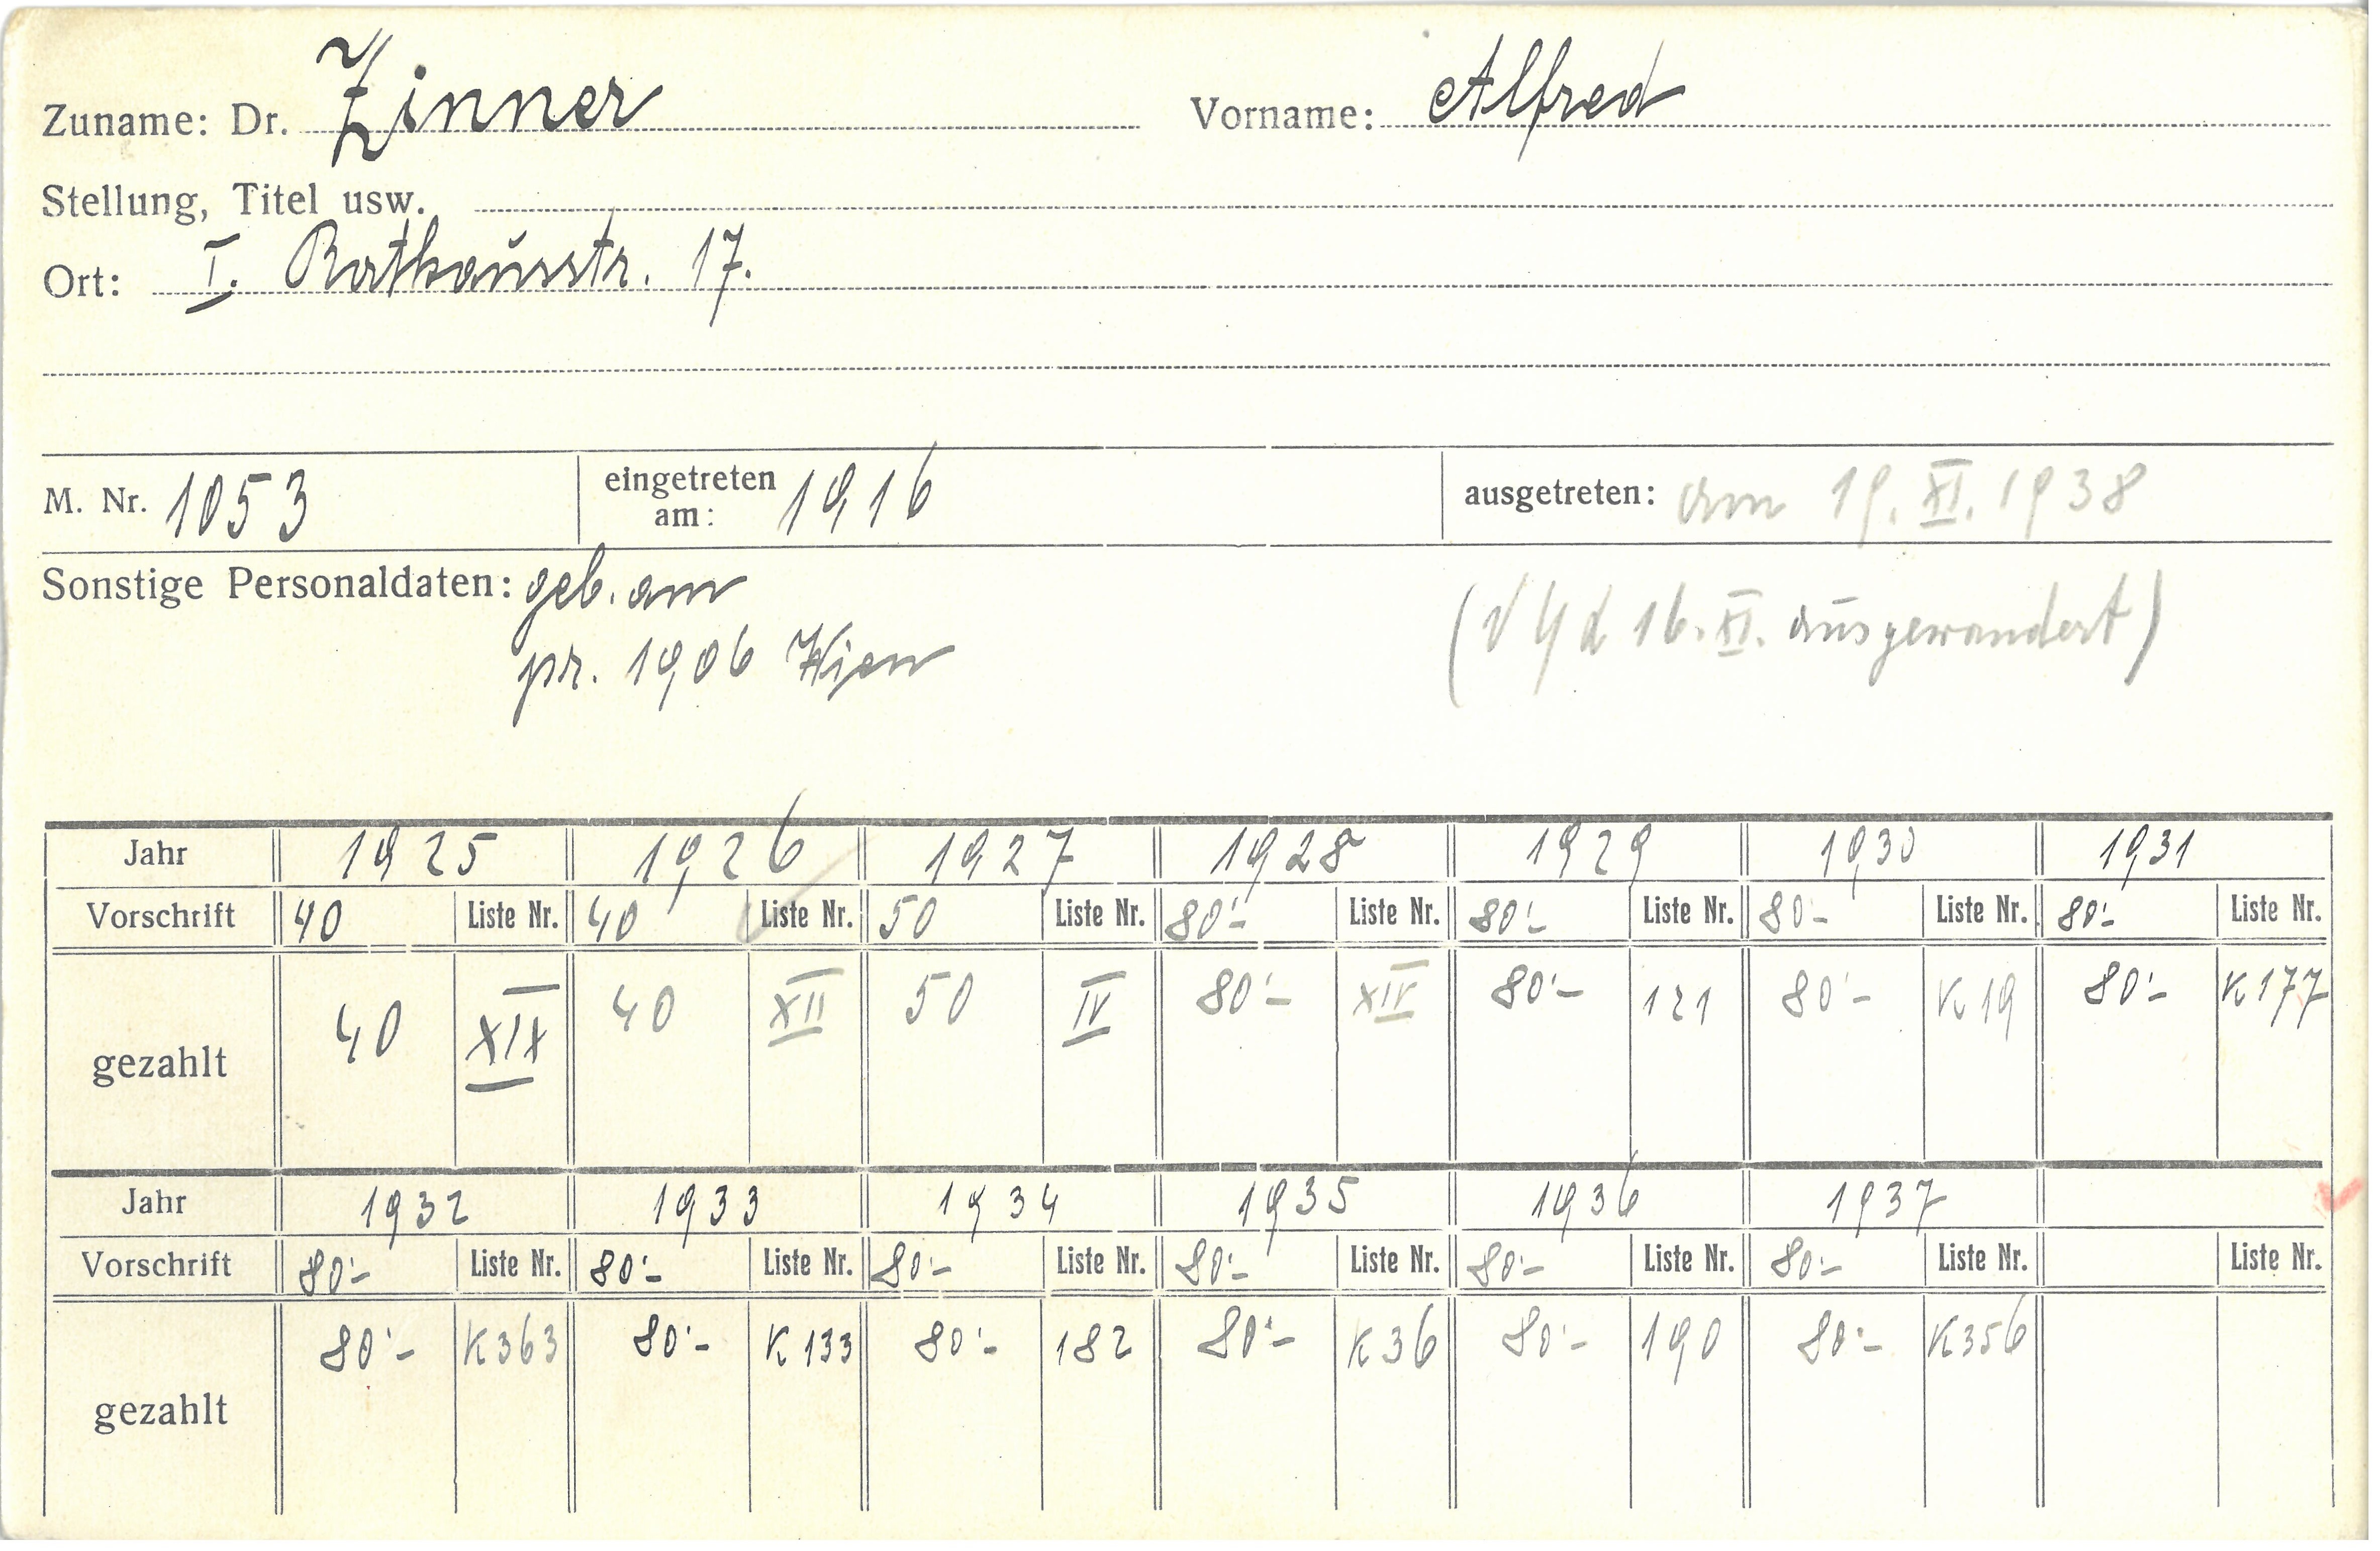 Zuname: Dr. Zinner Vorname: Alfred
Stellung, Titel usw.
Ort: I. Rathausstr. 17.
M. Nr. 1053 eingetreten am: 1916 ausgetreten: am 19. XI. 1938
Sonstige Personaldaten: geb. am
pr. 1906 Wien
16. XI. ausgewandert)
Jahr 1925 1926 1927 1928 1929 1930 1931
Vorschrift 40 Liste Nr. 40 Liste Nr. 50 Liste Nr. 80'- Liste Nr. 80'- Liste Nr. 80'- Liste Nr. 80'- Liste Nr.
gezahlt 40 XIX 40 XII 50 IV 80'- XIV 80'- 121 80'- K 19 80'- K 177
Jahr 1932 1933 1934 1935 1936 1937
Vorschrift 80'- Liste Nr. 80'- Liste Nr. 80'- Liste Nr. 80'- Liste Nr. 80'- Liste Nr. 80'- Liste Nr. Liste Nr.
gezahlt 80'- K 363 80'- K 133 80'- 182 80'- K 36 80'- 190 80'- K 356